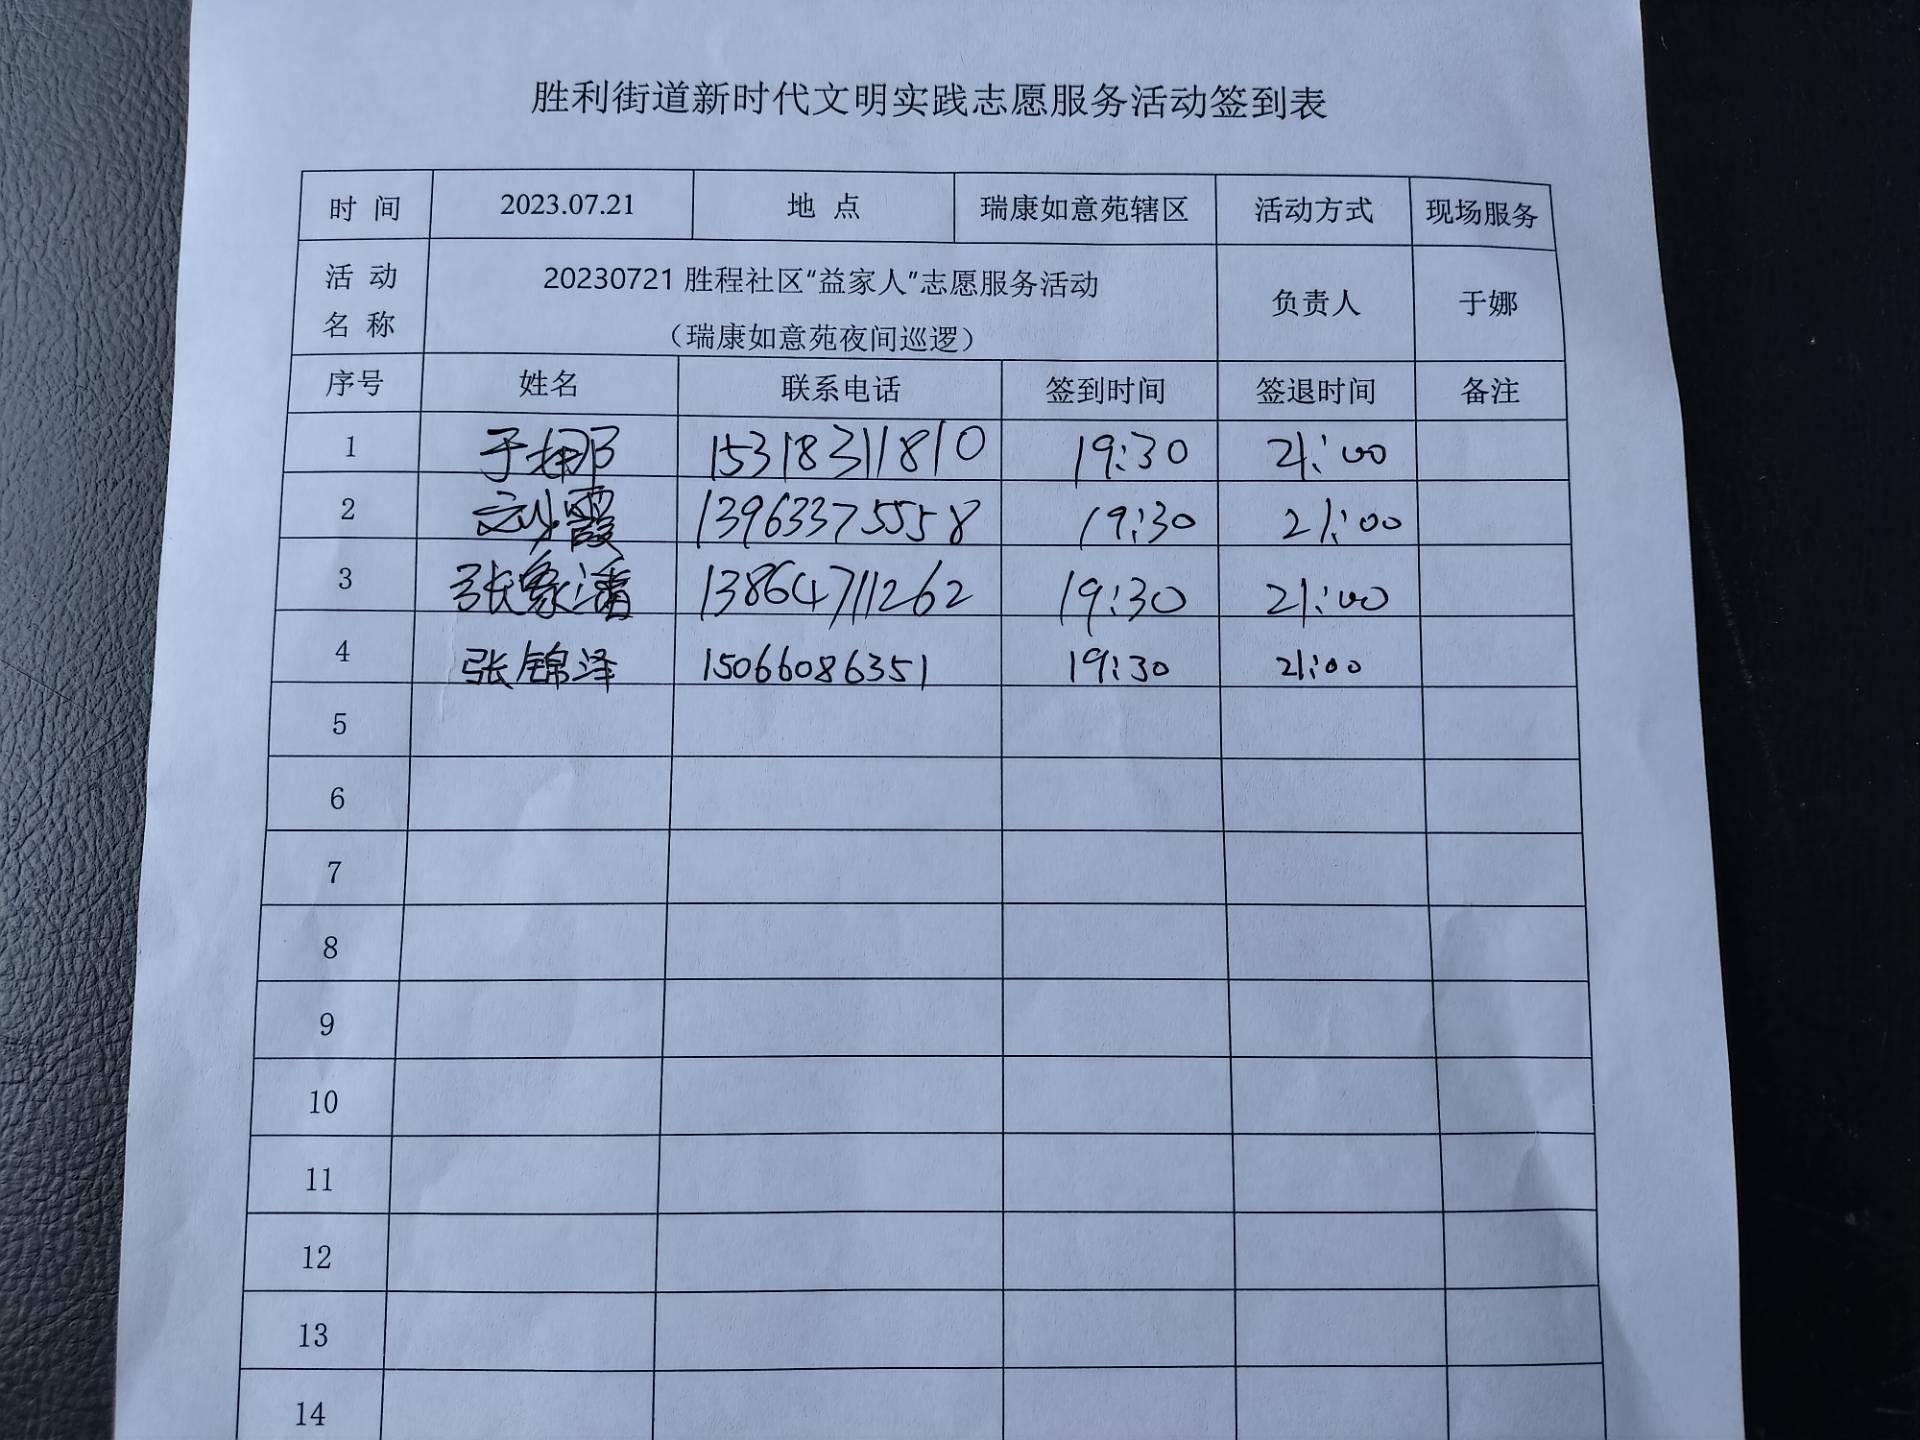 胜利街道新时代文明实践志愿服务活动签到表
时 间 2023.07.21 地 点 瑞康如意苑辖区 活动方式 现场服务
活 动 名 称 20230721 胜程社区“益家人”志愿服务活动 负责人 于娜
（瑞康如意苑夜间巡逻）
序号 姓名 联系电话 签到时间 签退时间 备注
1 于娜 15318311810 19:30 21:00
2 霞 13963375558 19:30 21:00
3 张家 13864711262 19:30 21:00
4 张锦泽 15066086351 19:30 21:00
5
6
7
8
9
10
11
12
13
14